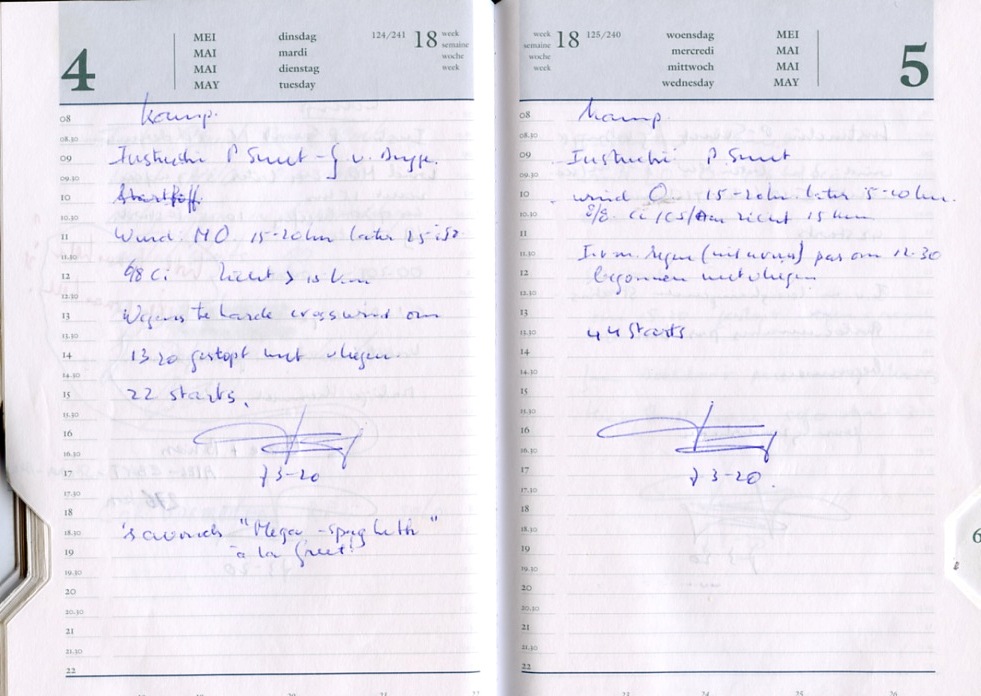 4
MEI dinsdag 124/241 18 week
MAI mardi semaine
MAI dienstag woche
MAY tuesday week
08 kamp.
08.30
09 Instructie P Smet - J v.
09.30
10 Startoff.
10.30
11 Wind NO 15-20 km later 25
11.30
12 6/8 Ci zicht > 15 km
12.30
13 Wegens te harde crosswind om
13.30
14 13 20 gestopt met vliegen
14.30
15 22 starts.
15.30
16
16.30
17 J 3-20
17.30
18
18.30 's avonds "Mega-spaghetti"
19 à la Greet!
19.30
20
20.30
21
21.30
22
week 18 125/240 woensdag MEI
semaine mercredi MAI
woche mittwoch MAI
week wednesday MAY
5
08 kamp
08.30
09 Instructie P. Smet
09.30
10 wind O 15-20 km later 5-10 km.
10.30 8/8 Ci /CS/ zicht 15 km
11
11.30 I.v.m. regen (miezeren) pas om 12.30
12 begonnen met vliegen
12.30
13
13.30 44 starts
14
14.30
15
15.30
16
16.30
17 J 3-20.
17.30
18
18.30
19
19.30
20
20.30
21
21.30
22
6